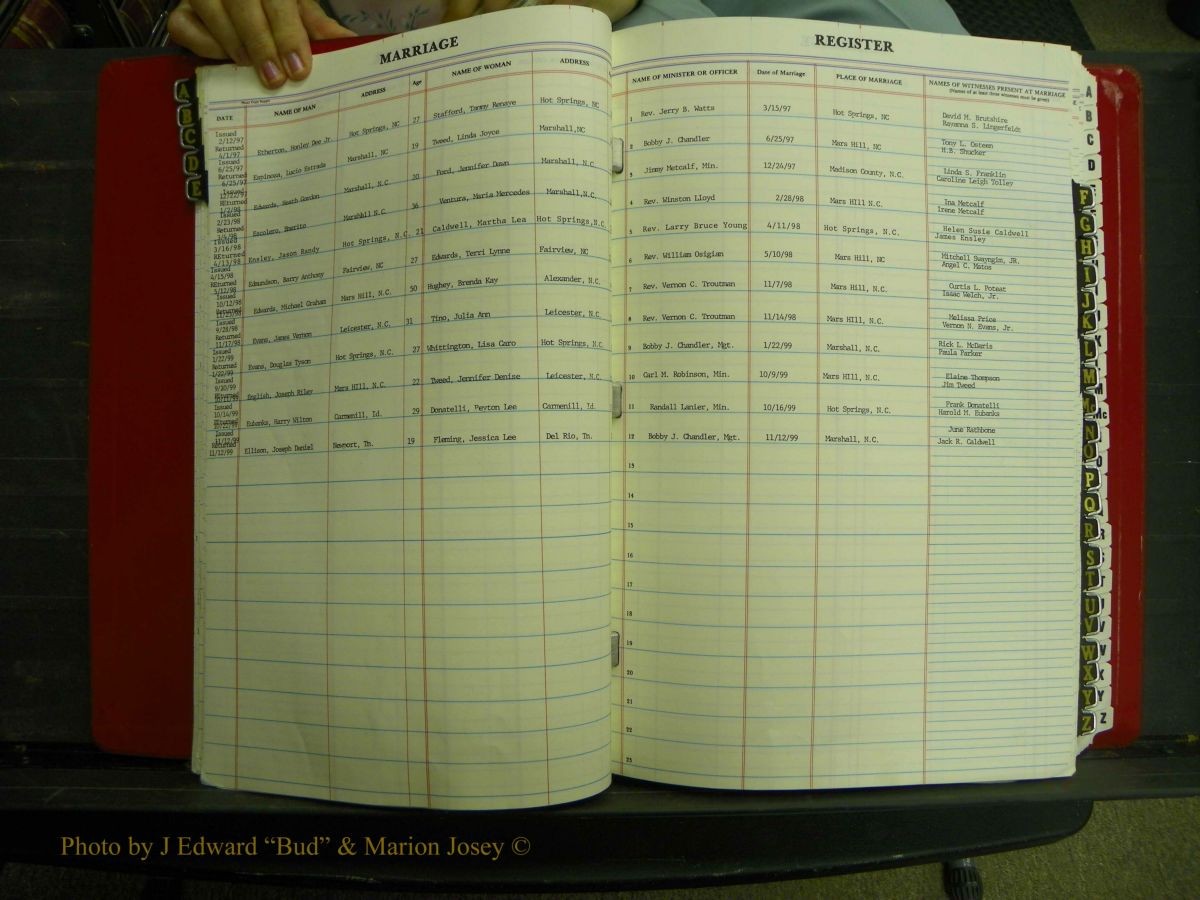 MARRIAGE
DATE NAME OF MAN ADDRESS Age NAME OF WOMAN ADDRESS
Issued
2/12/97
Returned
4/1/97
Etherton, Henley Dee Jr. Hot Springs, NC 27 Stafford, Tammy Renaye Hot Springs, NC
Issued
6/25/97
Returned
6/25/97
Espinoza, Lucio Estrada Marshall, NC 19 Tweed, Linda Joyce Marshall,NC
Issued
REturned
1/2/98
Edwards, Heath Gordon Marshall, N.C. 30 Ford, Jennifer Dawn Marshall, N.C.
Issued
2/23/98
Returned
Escolero, Emerito Marshhll N.C. 36 Ventura, Maria Mercedes Marshall,N.C.
Issued
3/16/98
REturned
4/13/98
Ensley, Jason Randy Hot Springs, N.C. 21 Caldwell, Martha Lea Hot Springs,N.C.
Issued
4/15/98
REturned
5/12/98
Edmundson, Barry Anthony Fairview, NC 27 Edwards, Terri Lynne Fairview, NC
Issued
10/12/98
Returned
Edwards, Michael Graham Mars Hill, N.C. 50 Hughey, Brenda Kay Alexander, N.C.
Issued
9/28/98
Returned
11/17/98
Evans, James Vernon Leicester, N.C. 31 Tino, Julia Ann Leicester, N.C.
Issued
1/22/99
Returned
1/22/99
Evans, Douglas Tyson Hot Springs, N.C. 27 Whittington, Lisa Caro Hot Springs, N.C.
Issued
9/20/99
REturned
English, Joseph Riley Mars HIll, N.C. 22 Tweed, Jennifer Denise Leicester,N.C.
Issued
10/14/99
REturned
Eubanks, Harry Wilton Carmenill, Id. 29 Donatelli, Peyton Lee Carmenill, Id.
Issued
11/12/99
Returned
11/12/99
Ellison, Joseph Daniel Newport, Tn. 19 Fleming, Jessica Lee Del Rio, Tn.
REGISTER
NAME OF MINISTER OR OFFICER Date of Marriage PLACE OF MARRIAGE NAMES OF WITNESSES PRESENT AT MARRIAGE
(Names of at least three witnesses must be given)
1 Rev. Jerry B. Watts 3/15/97 Hot Springs, NC David M. Brutshire
Ravanna S. Lingerfeldt
2 Bobby J. Chandler 6/25/97 Mars Hill, NC Tony L. Osteen
H.B. Shucker
3 Jimmy Metcalf, Min. 12/24/97 Madison County, N.C. Linda S. Franklin
Caroline Leigh Tolley
4 Rev. Winston Lloyd 2/28/98 Mars HIll N.C. Ina Metcalf
Irene Metcalf
5 Rev. Larry Bruce Young 4/11/98 Hot Springs, N.C. Helen Susie Caldwell
James Ensley
6 Rev. William Osigian 5/10/98 Mars Hill, NC Mitchell Swayngim, JR.
Angel C. Matos
7 Rev. Vernon C. Troutman 11/7/98 Mars Hill, N.C. Curtis L. Poteat
Isaac Welch, Jr.
8 Rev. Vernon C. Troutman 11/14/98 Mars HIll, N.C. Melissa Price
Vernon N. Evans, Jr.
9 Bobby J. Chandler, Mgt. 1/22/99 Marshall, N.C. Rick L. McDaris
Paula Parker
10 Carl M. Robinson, Min. 10/9/99 Mars HIll, N.C. Elaine Thompson
Jim Tweed
11 Randall Lanier, Min. 10/16/99 Hot Springs, N.C. Frank Donatelli
Harold M. Eubanks
12 Bobby J. Chandler, Mgt. 11/12/99 Marshall, N.C. June Rathbone
Jack R. Caldwell
13
14
15
16
17
18
19
20
21
22
23
A
B
C
D
E
A
B
C
D
F
G
H
I
J
K
L
M
Mc
N
O
P
Q
R
S
T
U
V
W
X
Y
Z
Photo by J Edward “Bud” & Marion Josey ©